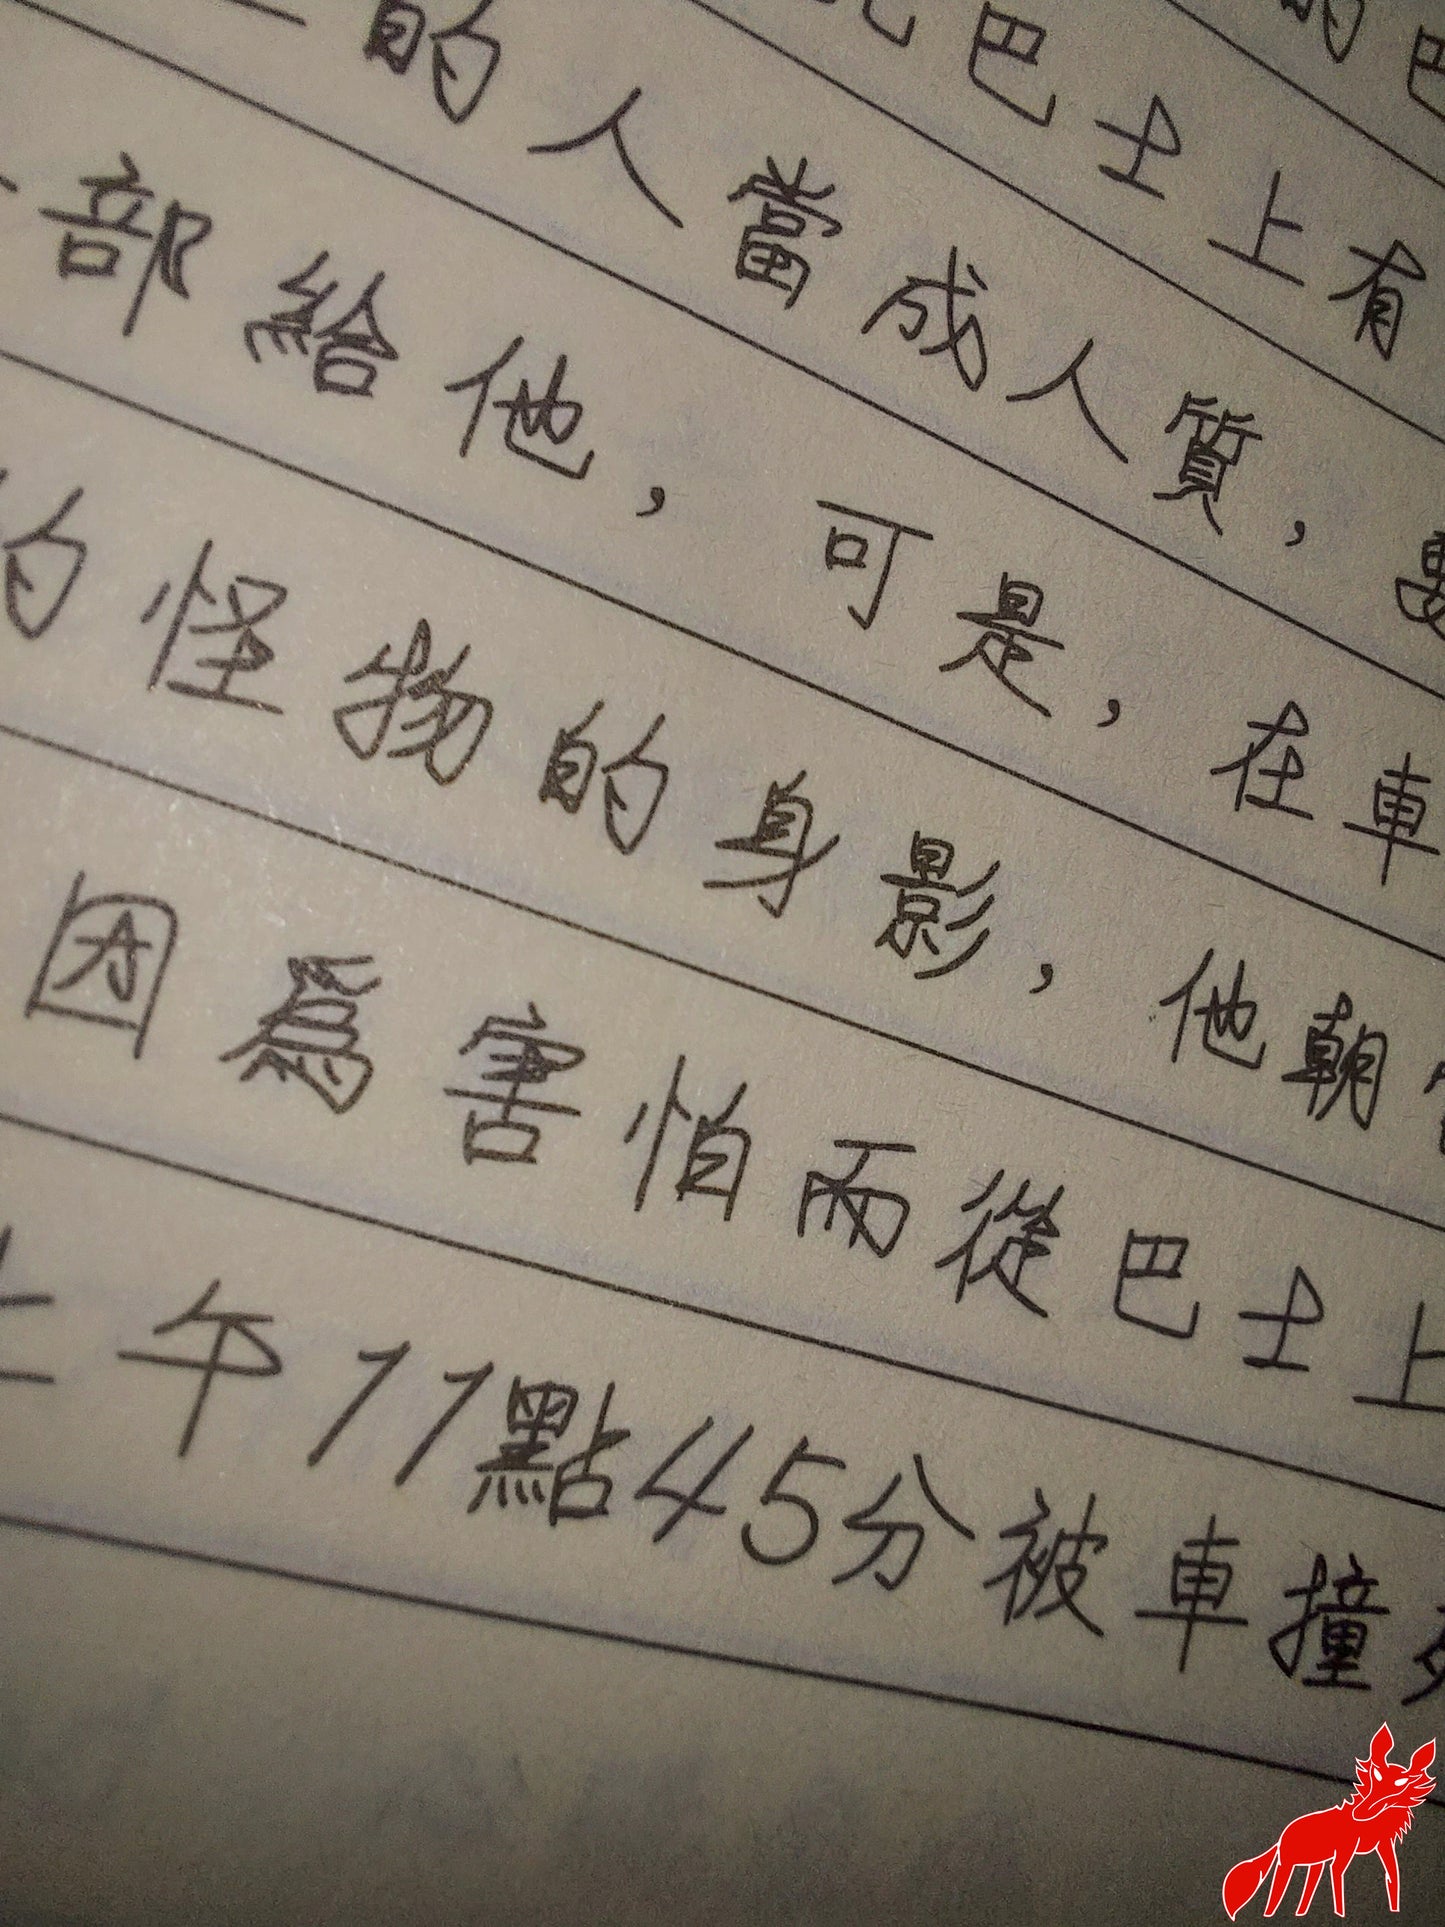 的巴
巴士上有
的人當成人質，要
部給他，可是，在車
的怪物的身影，他朝
因為害怕而從巴士上
上午11點45分被車撞